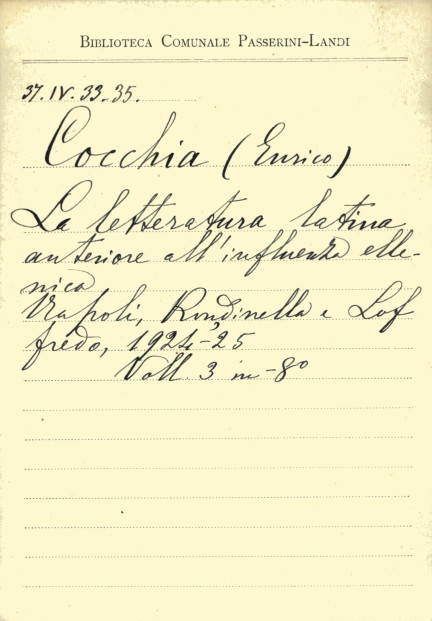 BIBLIOTECA COMUNALE PASSERINI-LANDI
37.IV.33.35.
Cocchia (Enrico)
La letteratura latina
anteriore all'influenza elle-
nica
Napoli, Rondinella e Lof
fredo, 1924-25
Voll. 3 in-8º